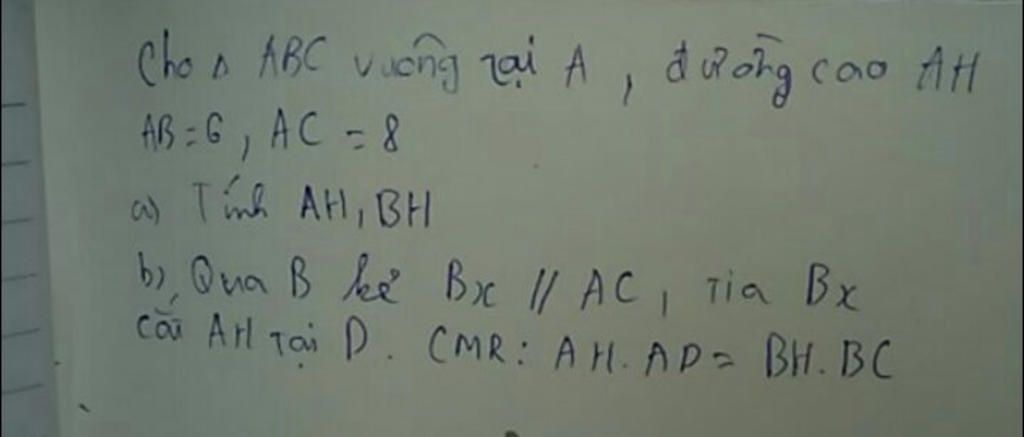 Cho Δ ABC vuông tại A, đường cao AH
AB = 6, AC = 8
a) Tính AH, BH
b), Qua B kẻ Bx // AC, Tia Bx
cắt AH tại D. CMR: AH.AD = BH.BC